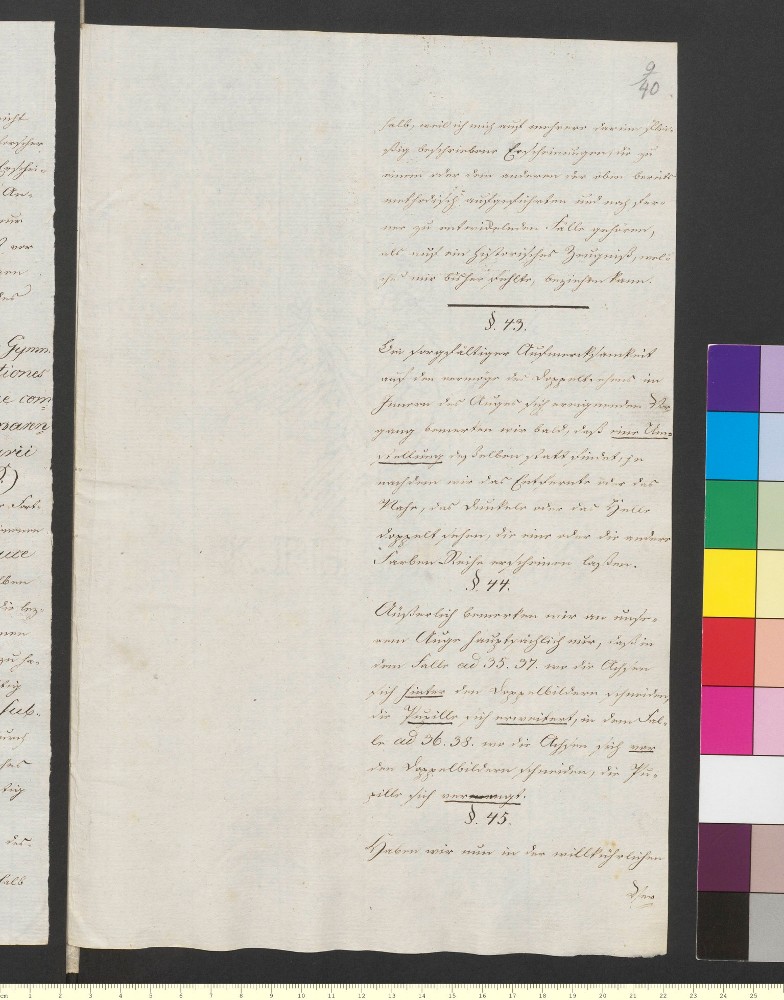 9
40
halb, weil ich mich auf mehrere darin flei-
ßig beschriebene Erscheinungen, die zu
einem oder dem anderen der oben bereits
methodisch aufgeführten und noch fer-
ner zu entwickelnden Fälle gehören,
als auf ein historisches Zeugniß, wel-
ches mir bisher fehlte, beziehen kann.
§. 43.
Bei sorgfältiger Aufmerksamkeit
auf den vermöge des Doppeltsehens im
Innern des Auges sich ereignenden Vor
gang bemerken wir bald, daß eine Um-
stellung desselben statt findet, je
nachdem wir das Entfernte oder das
Nahe, das Dunkele oder das Helle
doppelt sehen, die eine oder die andere
Farben Reihe erscheinen lassen.
§. 44.
Äußerlich bemerken wir an unse-
rem Auge hauptsächlich nur, daß in
dem Falle ad 35. 37. wo die Achsen
sich hinter den Doppelbildern schneiden,
die Pupille sich erweitert, in dem Fal-
le ad 36. 38. wo die Achsen sich vor
den Doppelbildern schneiden, die Pu-
pille sich verengt.
§. 45.
Haben wir nun in der willkührlichen
icht
An-
nur
des
Gymn.
tiones
ue com
mann
rii
Fort-
ben
die lez-
zu ha-
tig
durch
tig
des-
halb